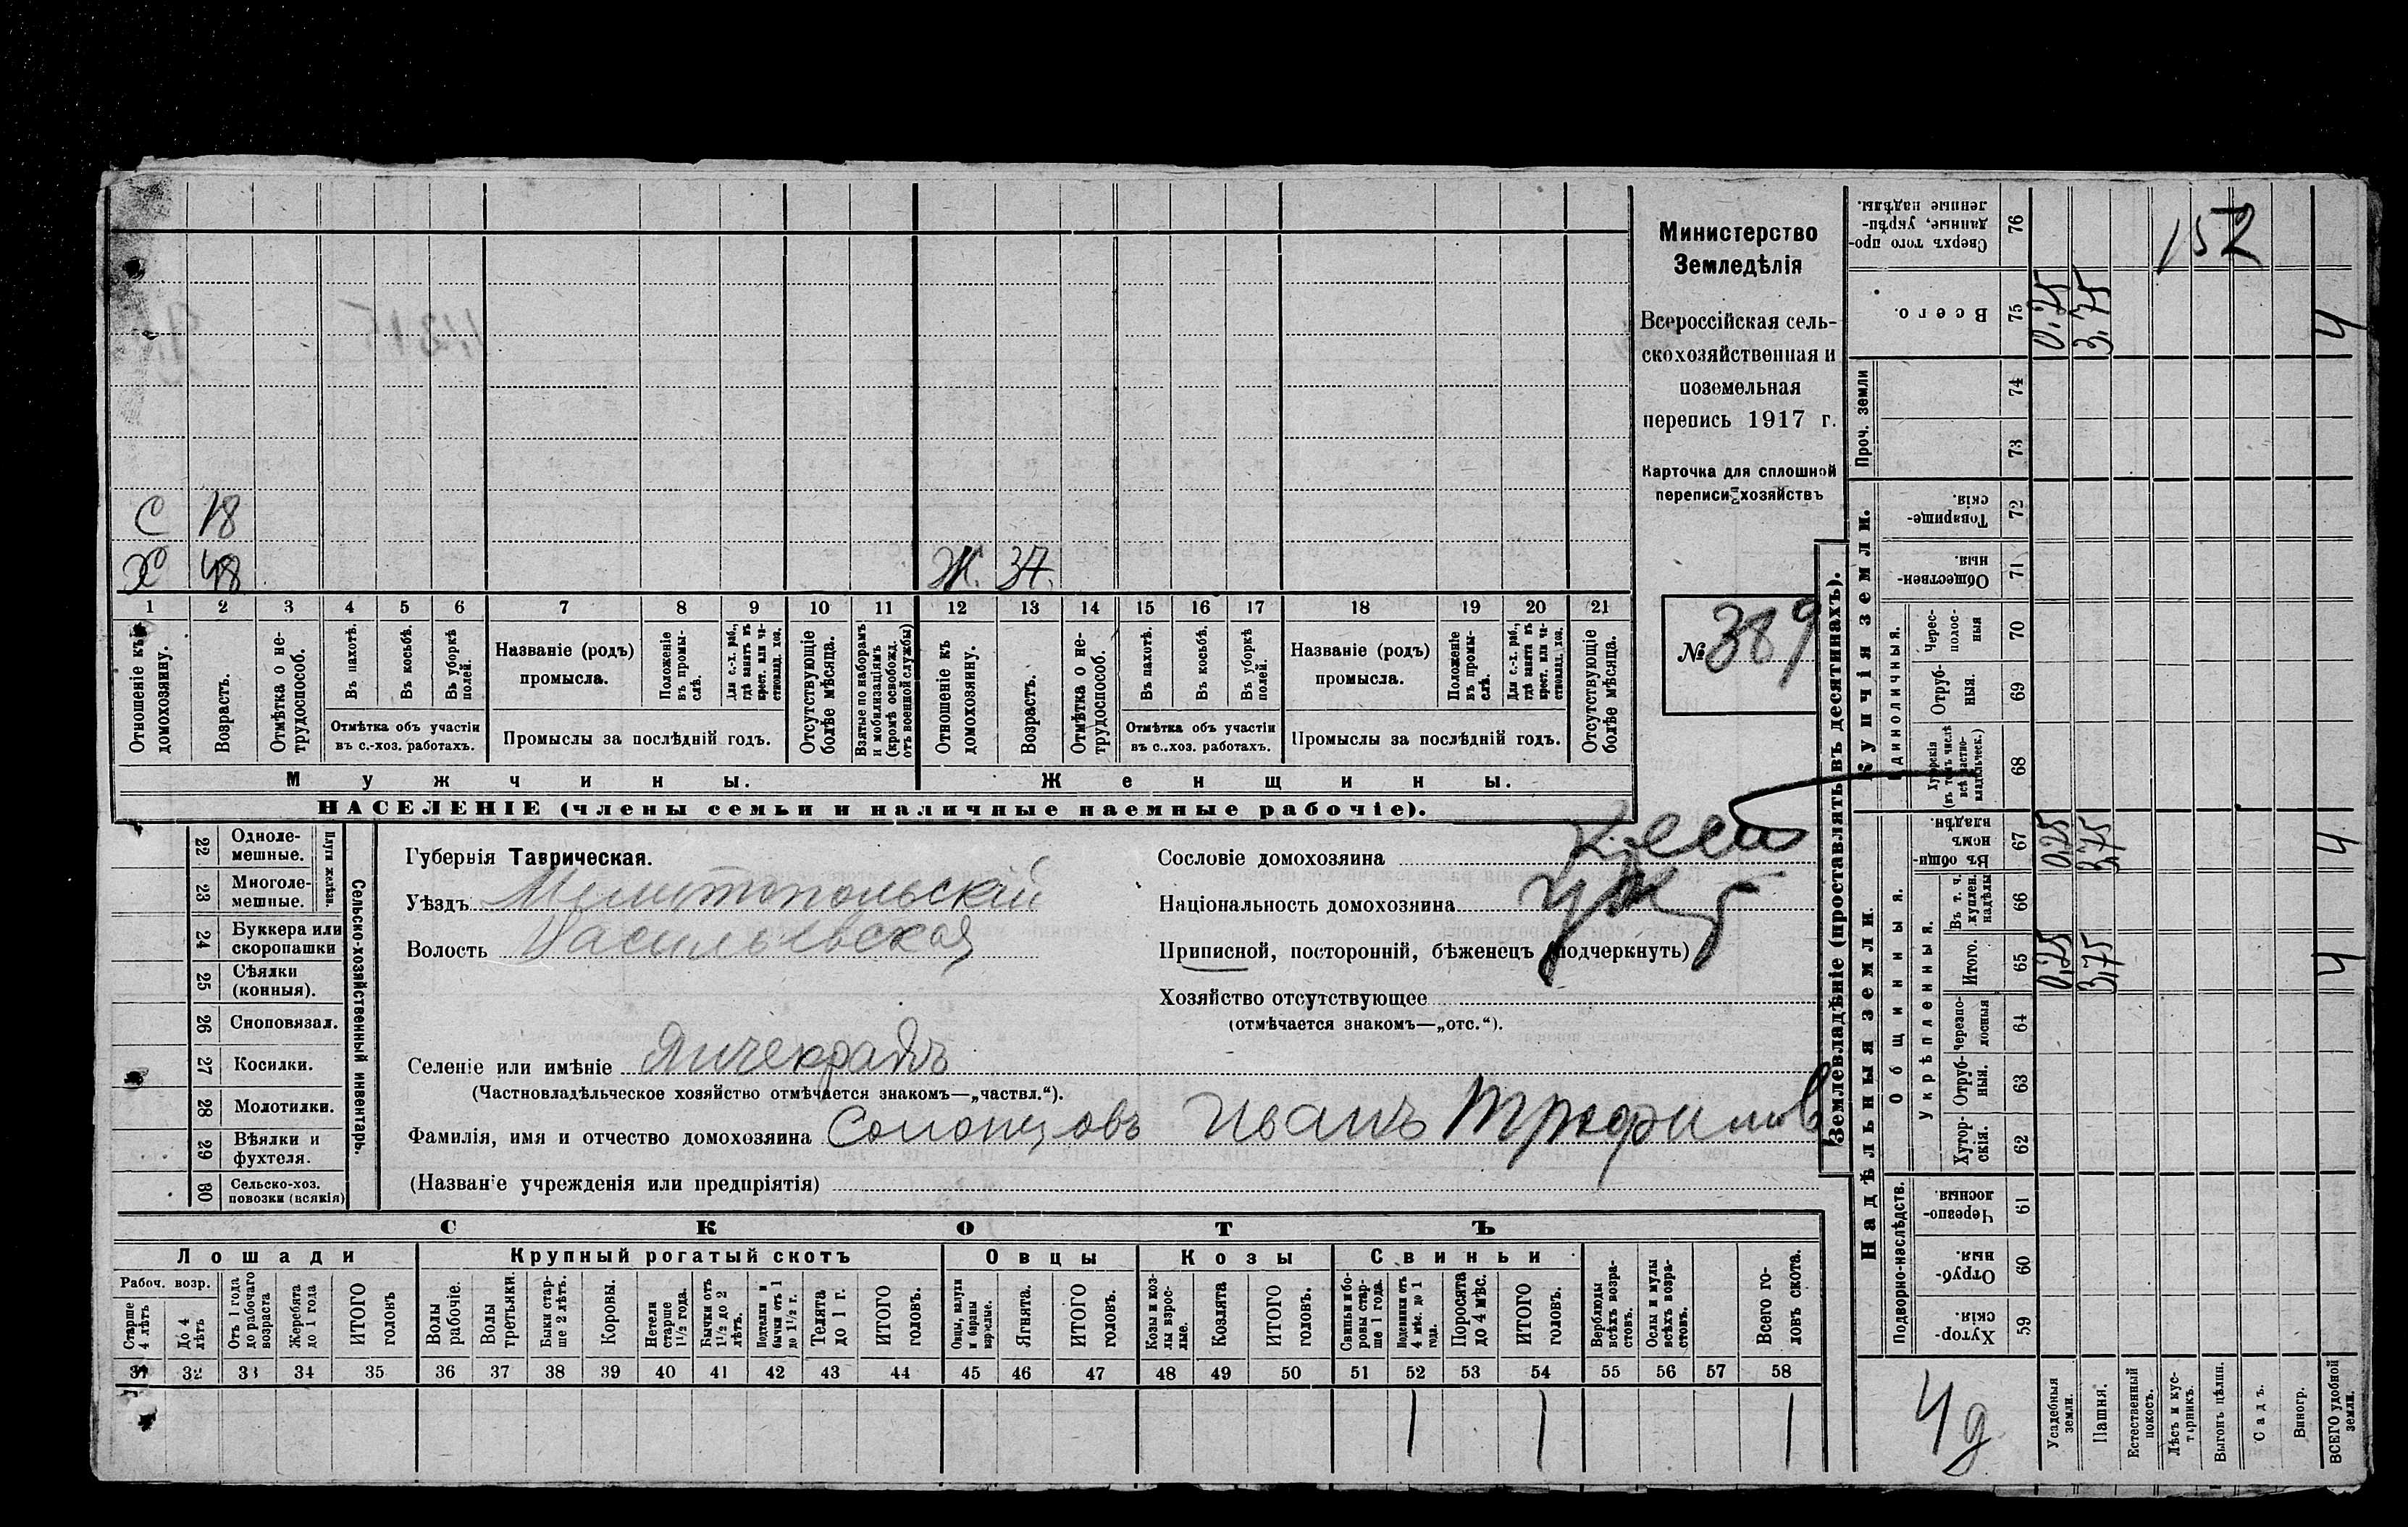 С 18
Х 48
Ж. 37.
1 2 3 4 5 6 7 8 9 10 11 12 13 14 15 16 17 18 19 20 21
Отношеніе къ домохозяину.
Возрастъ.
Отмѣтка о не-
трудоспособ.
Въ пахотѣ.
Въ косьбѣ.
Въ уборкѣ
полей.
Отмѣтка объ участіи
въ с.-хоз. работахъ.
Названіе (родъ)
промысла.
Положеніе
въ промы-
слѣ.
Для с.-х. раб.,
гдѣ занятъ въ
крест. или ча-
стновлад. хоз.
Промыслы за послѣдній годъ.
Отсутствующіе
болѣе мѣсяца.
Взятые по наборамъ
и мобилизаціямъ
(кромѣ освобожд.
отъ военной службы)
Отношеніе къ
домохозяину.
Возрастъ.
Отмѣтка о не-
трудоспособ.
Въ пахотѣ.
Въ косьбѣ.
Въ уборкѣ
полей.
Отмѣтка объ участіи
въ с..хоз. работахъ.
Названіе (родъ)
промысла.
Положеніе
въ промы-
слѣ.
Для с.-х. раб.,
гдѣ занята въ
крест. или ча-
стновлад. хоз.
Промыслы за послѣдній годъ.
Отсутствующіе
болѣе мѣсяца.
Мужчины.
Женщины.
НАСЕЛЕНІЕ (члены семьи и наличные наемные рабочіе).
Министерство
Земледѣлія
Всероссійская сель-
скохозяйственная и
поземельная
перепись 1917 г.
Карточка для сплошной
переписи хозяйствъ
№ 389
22 Одноле-
мешные.
23 Многоле-
мешные.
Плуги желѣзн.
24 Буккера или
скоропашки
25 Сѣялки
(конныя).
26 Сноповязал.
27 Косилки.
28 Молотилки.
29 Вѣялки и
фухтеля.
30 Сельско-хоз.
повозки (всякія)
Сельско-хозяйственный инвентарь.
Губернія Таврическая.
Уѣздъ Мелитопольскій
Волость Васильевская
Селеніе или имѣніе Янчекракъ
(Частновладѣльческое хозяйство отмѣчается знакомъ—„частвл.“).
Фамилія, имя и отчество домохозяина Солонцовъ Иванъ Трофимов
(Названіе учрежденія или предпріятія)
Сословіе домохозяина крест
Національность домохозяина
Приписной, посторонній, бѣженецъ (подчеркнуть)
Хозяйство отсутствующее
(отмѣчается знакомъ—„отс.“).
СКОТЪ
Лошади
Крупный рогатый скотъ
Овцы
Козы
Свиньи
Рабоч. возр.
Старше
4 лѣтъ
До 4
лѣтъ
Отъ 1 года
до рабочаго
возраста
Жеребята
до 1 года
ИТОГО
головъ
Волы
рабочіе.
Волы
третьяки.
Быки стар-
ше 2 лѣтъ.
Коровы.
Нетели
старше
1½ года.
Бычки отъ
1½ до 2
лѣтъ.
Подтелки и
бычки отъ 1
до 1½ г.
Телята
до 1 г.
ИТОГО
головъ.
Овцы, валухи
и бараны
взрослые.
Ягнята.
ИТОГО
головъ.
Козы и коз-
лы взрос-
лые.
Козлята
ИТОГО
головъ.
Свиньи и бо-
ровы стар-
ше 1 года.
Подсвинки отъ
4 мѣс. до 1
года.
Поросята
до 4 мѣс.
ИТОГО
головъ.
Верблюды
всѣхъ возра-
стовъ.
Ослы и мулы
всѣхъ возра-
стовъ.
Всего го-
ловъ скота.
31 32 33 34 35 36 37 38 39 40 41 42 43 44 45 46 47 48 49 50 51 52 53 54 55 56 57 58
1 1 1
Землевладѣніе (проставлять въ десятинахъ).
Надѣльныя земли.
Купчія земли.
Проч. земли
Подворно-наслѣдств.
Общинныя.
Укрѣпленныя.
Единоличныя.
Хутор-
скія. 59
Отруб-
ныя. 60
Черезпо-
лосныя. 61
Хутор-
скія. 62
Отруб-
ныя. 63
Черезпо-
лосныя 64
Итого. 65
Въ т. ч.
куплен.
надѣлы 66
Въ общи-
номъ
владѣн. 67
Хуторскія
(въ томъ числѣ
всѣ частно-
владѣльческ.) 68
Отруб-
ныя. 69
Черес-
полос-
ныя 70
Обществен-
ныя. 71
Товарище-
скія. 72
73
74
Всего. 75
Сверхъ того про-
данные, укрѣп-
ленные надѣлы. 76
4 д
Усадебныя
земли. 0,25 0,25 0,25
Пашня. 3,75 3,75 3,75
Естественный
покосъ.
Лѣсъ и кус-
тарникъ.
Выгонъ цѣлин.
Садъ.
Виногр.
ВСЕГО удобной
земли. 4 4 4
152